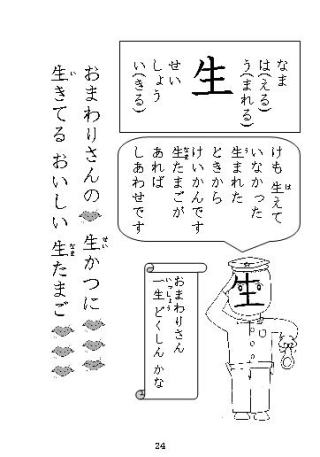 なま
は(える)
う(まれる)
生
せい
しょう
い(きる)
は
けも 生えて
いなかった
う
生まれた
ときから
けいかんです
なま
生たまごが
あれば
しあわせです
生
おまわりさん
いっしょう
一生 どくしん かな
せい
おまわりさんの 生かつに
い なま
生きてる おいしい 生たまご
24